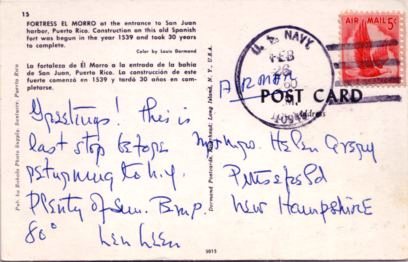 15
FORTRESS EL MORRO at the entrance to San Juan
harbor, Puerto Rico. Construction on this old Spanish
Fort was begun in the year 1539 and took 30 years
to complete.
Color by Louis Dormand
La fortaleza de El Morro a la entrada de la bahía
de San Juan, Puerto Rico. La construcción de este
fuerte comenzó en 1539 y tardó 30 años en com-
pletarse.
Greetings! This is
last stop before
returning to N.Y.
Plenty of Sun.
80°
Pub. by Rahola Photo Supply, Santurce, Puerto Rico
Dormand Postcards, Riverhead, Long Island, N. Y., U.S.A.
5015
U. S. NAVY
FEB
26
AIR MAIL 5¢
POST CARD
Address
Helen
New Hampshire